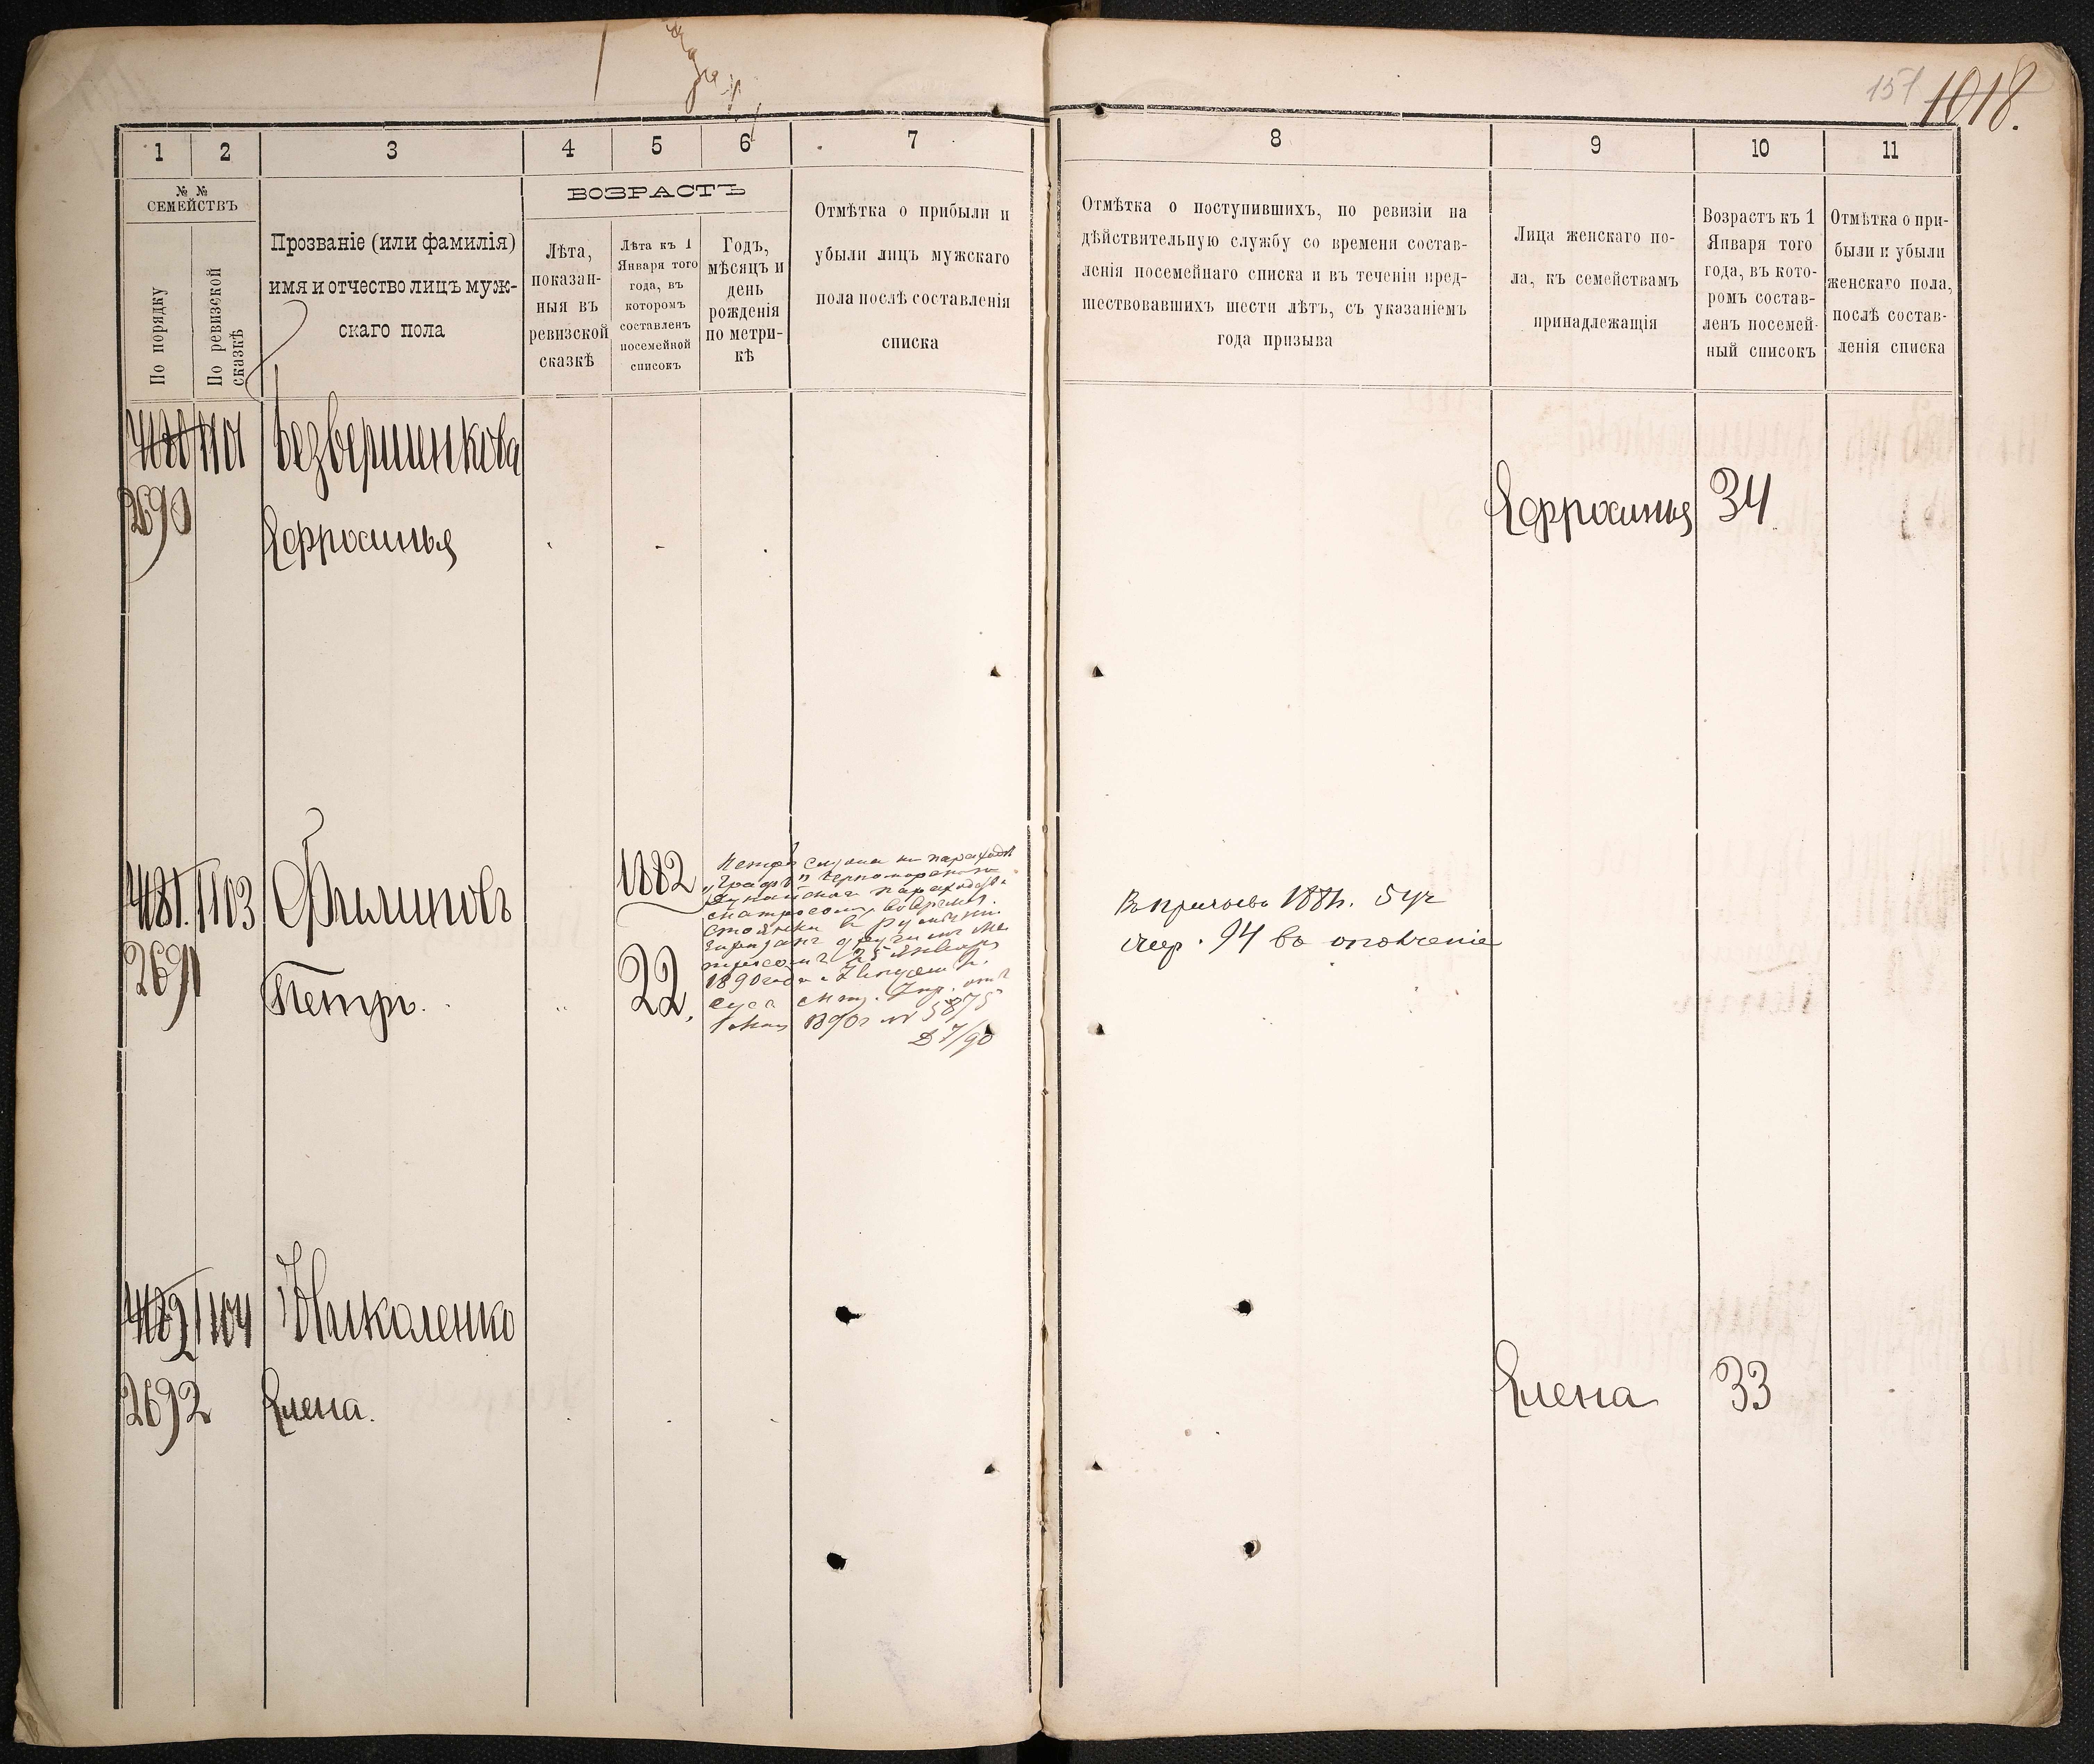 151 1018.
1 2 3 4 5 6 7 8 9 10 11
№ №
СЕМЕЙСТВЪ
По порядку
По ревизской
сказкѣ
Прозваніе (или фамилія)
имя и отчество лицъ муж-
скаго пола
ВОЗРАСТЪ
Лѣта,
показан-
ныя въ
ревизской
сказкѣ
Лѣта къ 1
Января того
года, въ
которомъ
составленъ
посемейной
списокъ
Годъ,
мѣсяцъ и
день
рожденія
по метри-
кѣ
Отмѣтка о прибыли и
убыли лицъ мужскаго
пола послѣ составленія
списка
Отмѣтка о поступившихъ, по ревизіи на
дѣйствительную службу со времени состав-
ленія посемейнаго списка и въ теченіи пред-
шествовавшихъ шести лѣтъ, съ указаніемъ
года призыва
Лица женскаго по-
ла, къ семействамъ
принадлежащія
Возрастъ къ 1
Января того
года, въ кото-
ромъ состав-
ленъ посемей-
ный списокъ
Отмѣтка о при-
были и убыли
женскаго пола,
послѣ состав-
ленія списка
1101 Безвершенкова
2690
Ефросинья
Ефросинья 34
1103 Филиповъ 1882
2691
Петръ. 22.
на пароходѣ
матросомъ, во время
стоянки в Румыніи
25 Января
1890 года
1890 № 5875
Д 7/90
94 въ ополченіе
1104 Николенко
2692
Елена.
Елена 33